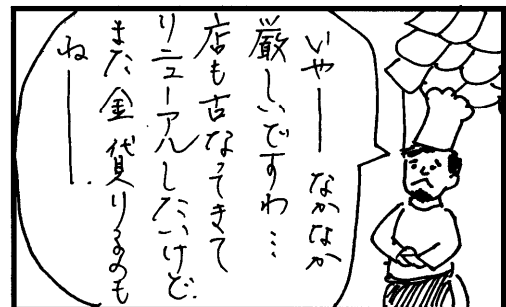 いやー なかなか
厳しいですわ…
店も古なってきて
リニューアルしたいけど、
また金借りるのも
ねー.